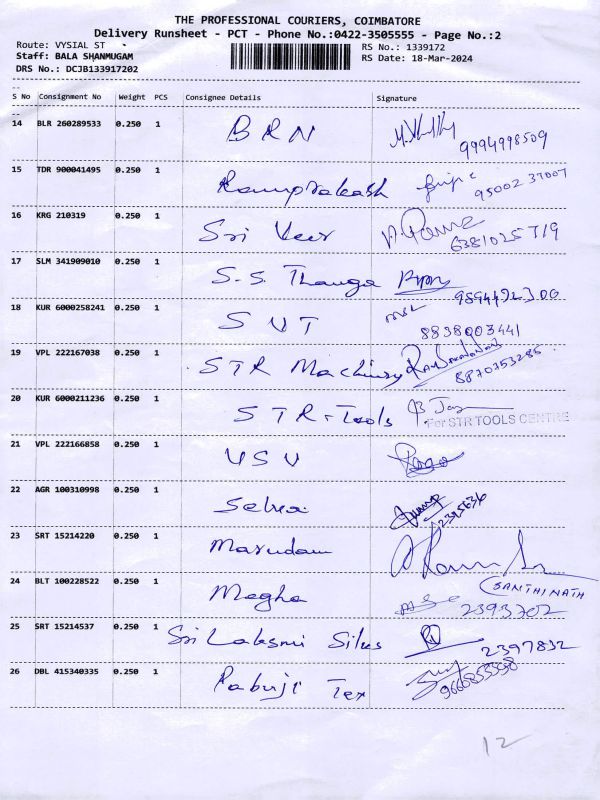 THE PROFESSIONAL COURIERS, COIMBATORE
Delivery Runsheet - PCT - Phone No.:0422-3505555 - Page No.:2
Route: VYSIAL ST RS No.: 1339172
Staff: BALA SHANMUGAM RS Date: 18-Mar-2024
DRS No.: DCJB133917202
S No Consignment No Weight PCS Consignee Details Signature
14 BLR 260289533 0.250 1 BRN 9994998509
15 TDR 900041495 0.250 1 Ramprakash 95002 37007
16 KRG 210319 0.250 1 Sri Veer 6381025719
17 SLM 341909010 0.250 1 S.S. Thanga 9894492300
18 KUR 6000258241 0.250 1 SVT 8838003441
19 VPL 222167038 0.250 1 STR Machinery 8870753285
20 KUR 6000211236 0.250 1 STR-Tools For STR TOOLS CENTRE
21 VPL 222166858 0.250 1 USV
22 AGR 100310998 0.250 1 Selva 2395636
23 SRT 15214220 0.250 1 Marudam
24 BLT 100228522 0.250 1 Megha SANTHINATH 2393702
25 SRT 15214537 0.250 1 Sri Laksmi Silks 2397832
26 DBL 415340335 0.250 1 Pabuji Tex
12